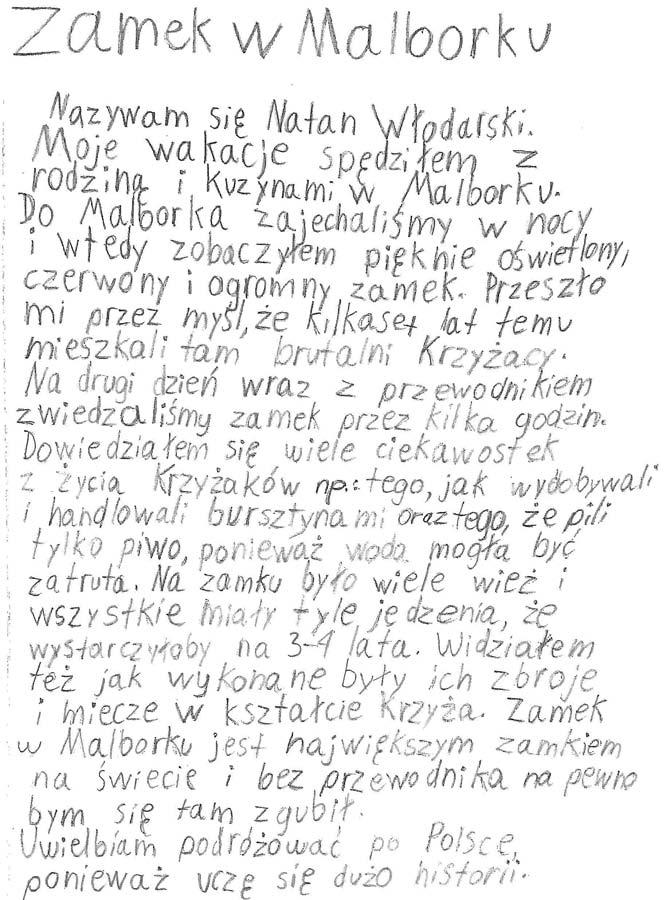 Zamek w Malborku
Nazywam się Natan Włodarski.
Moje wakacje spędziłem z
rodziną i kuzynami w Malborku.
Do Malborka zajechaliśmy w nocy
i wtedy zobaczyłem pięknie oświetlony,
czerwony i ogromny zamek. Przeszło
mi przez myśl, że kilkaset lat temu
mieszkali tam brutalni Krzyżacy.
Na drugi dzień wraz z przewodnikiem
zwiedzaliśmy zamek przez kilka godzin.
Dowiedziałem się wiele ciekawostek
z życia Krzyżaków np.: tego, jak wydobywali
i handlowali bursztynami oraz tego, że pili
tylko piwo, ponieważ woda mogła być
zatruta. Na zamku było wiele wież i
wszystkie miały tyle jedzenia, że
wystarczyłoby na 3-4 lata. Widziałem
też jak wykonane były ich zbroje
i miecze w kształcie Krzyża. Zamek
w Malborku jest największym zamkiem
na świecie i bez przewodnika na pewno
bym się tam zgubił.
Uwielbiam podróżować po Polsce,
ponieważ uczę się dużo historii.